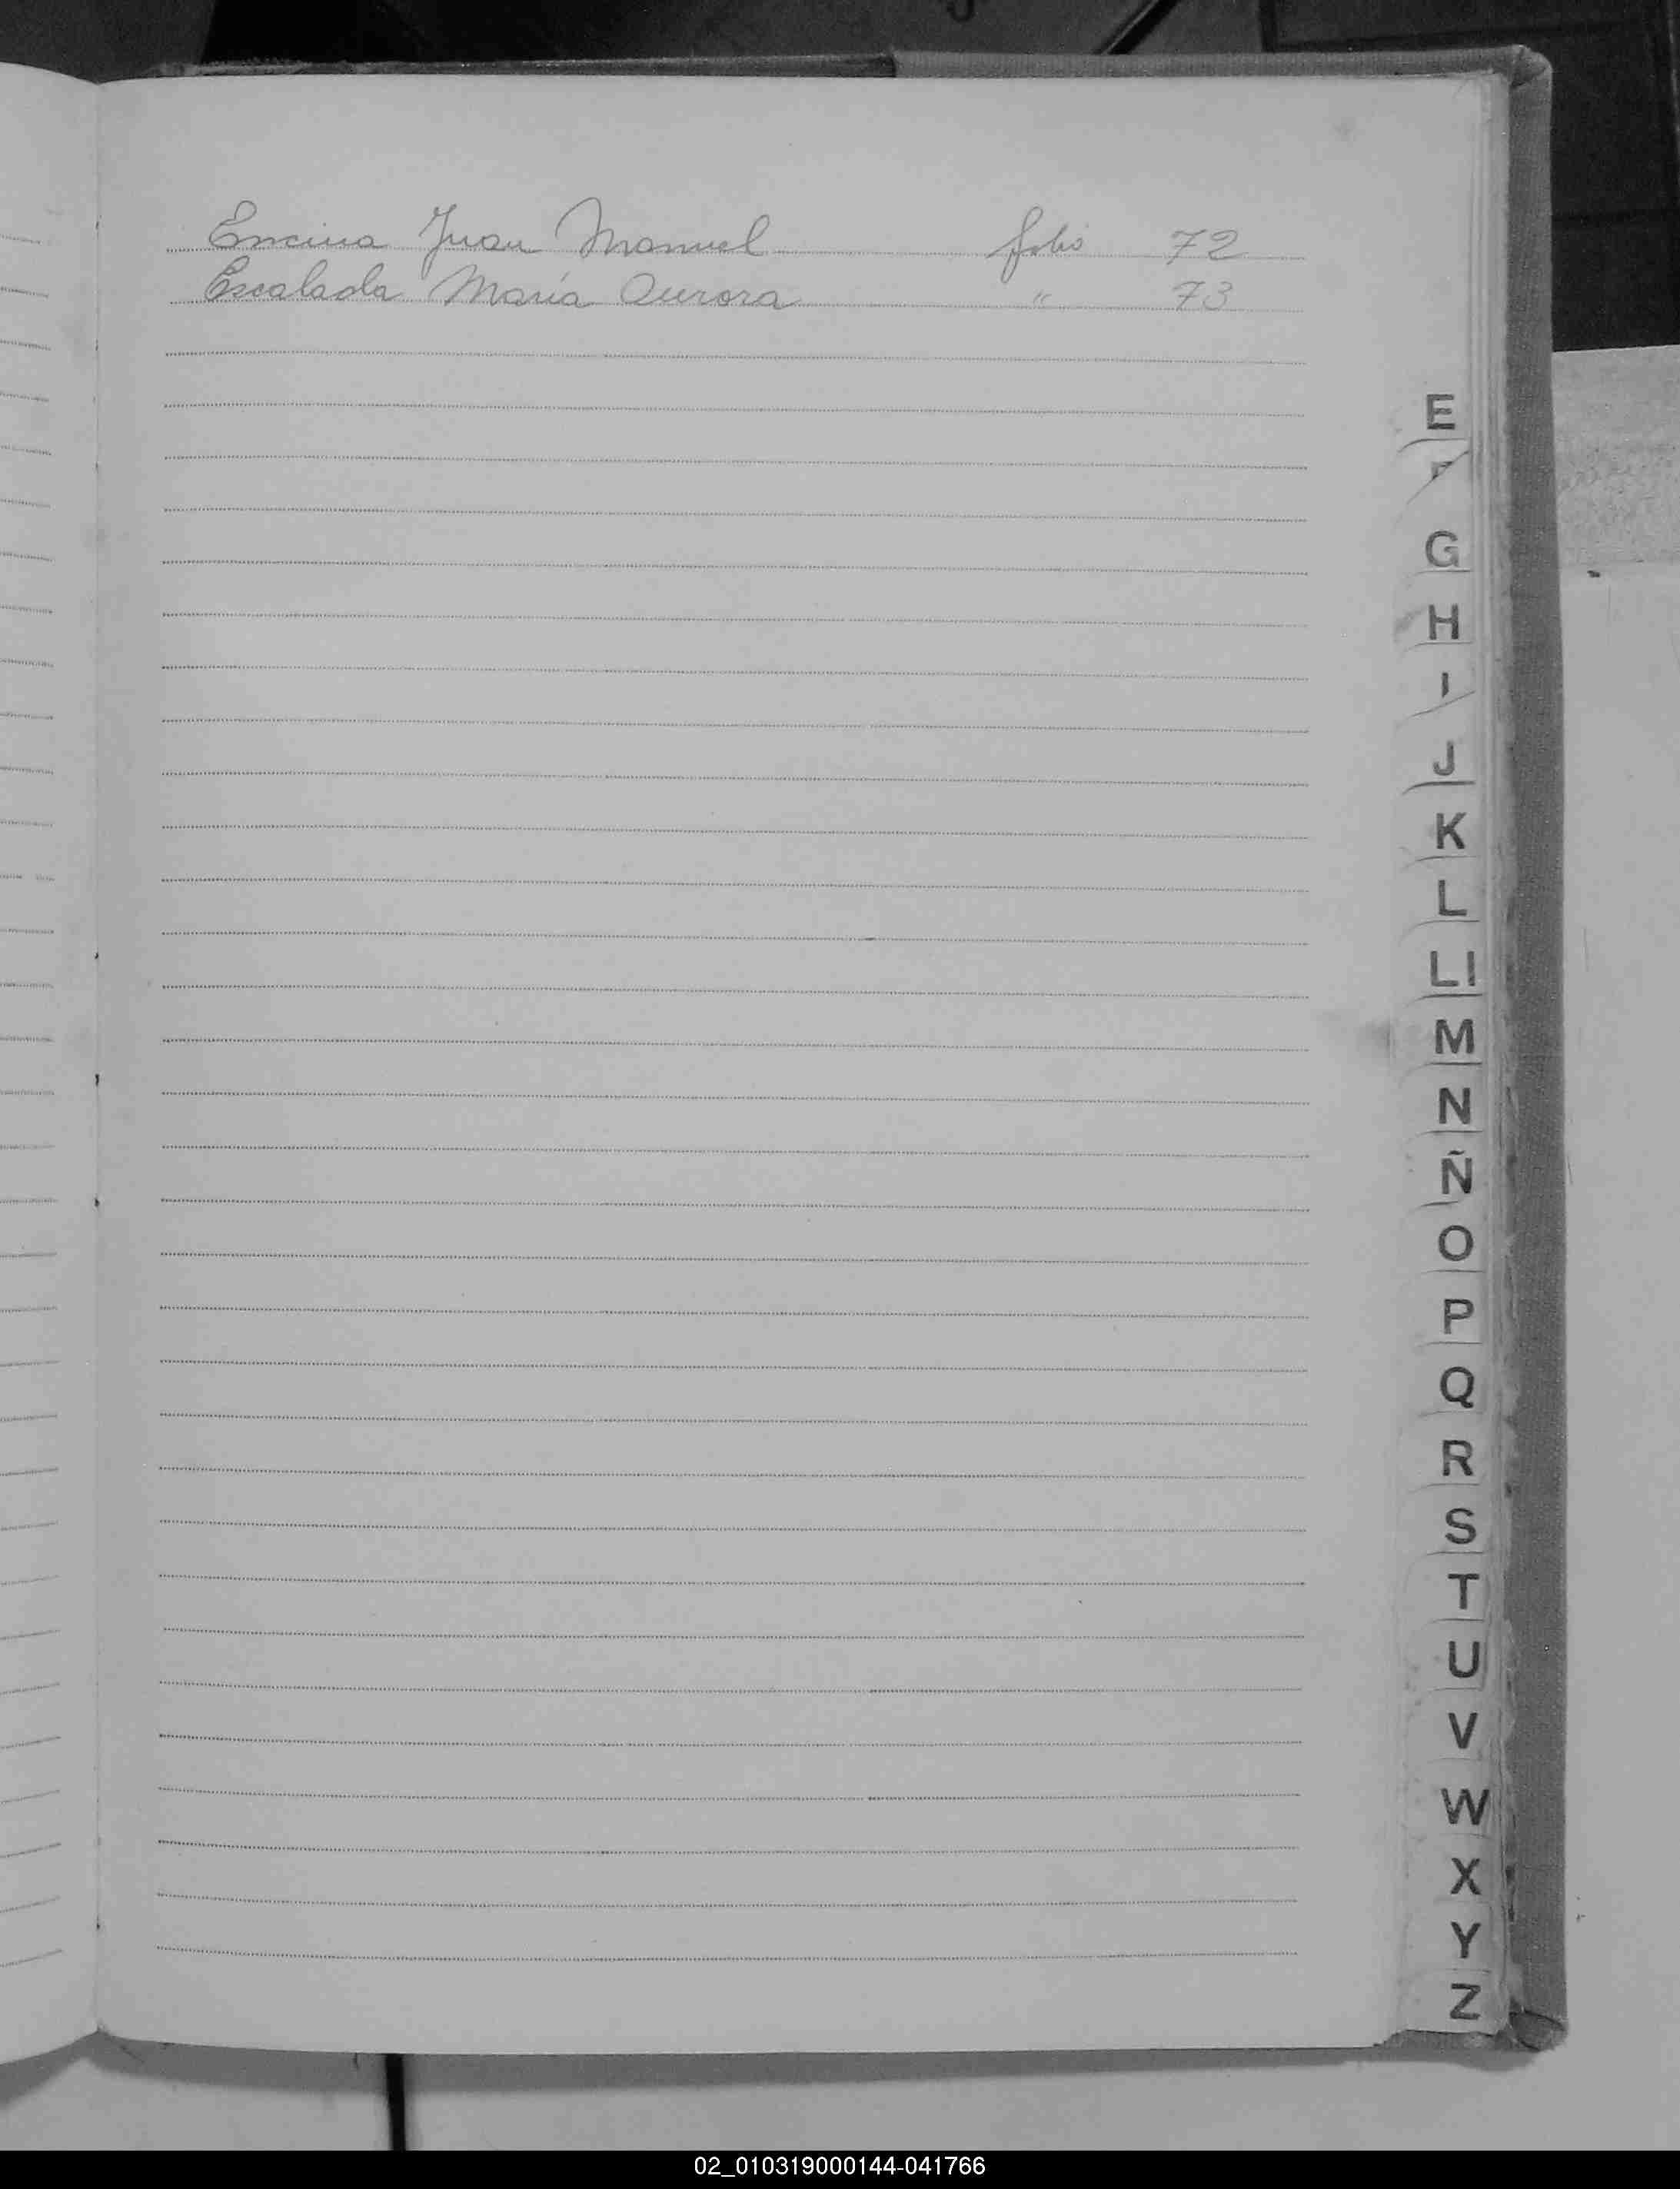 Encina Juan Manuel folio 72
Escalada María Aurora " 73
E
F
G
H
I
J
K
L
Ll
M
N
Ñ
O
P
Q
R
S
T
U
V
W
X
Y
Z
02_010319000144-041766